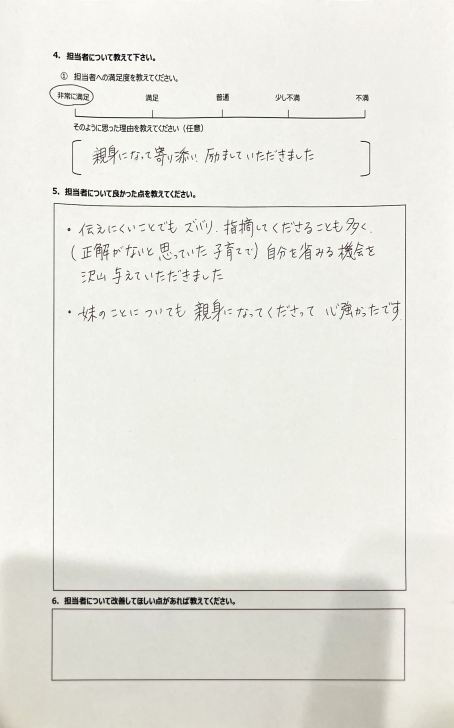 4. 担当者について教えて下さい。
① 担当者への満足度を教えてください。
非常に満足 満足 普通 少し不満 不満
そのように思った理由を教えてください（任意）
親身になって寄り添い 励ましていただきました
5. 担当者について良かった点を教えてください。
・伝えにくいことでも ズバリ、指摘してくださることも多く、
（正解がないと思っていた子育てで）自分を省みる機会を
沢山 与えていただきました
・妹のことについても 親身になってくださって 心強かったです。
6. 担当者について改善してほしい点があれば教えてください。